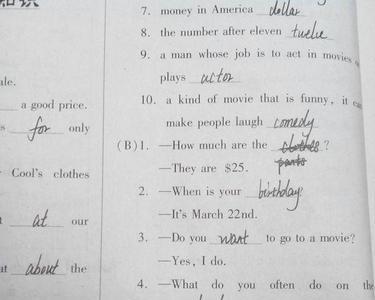 7. money in America dollar
8. the number after eleven twelve
9. a man whose job is to act in movies
plays actor
10. a kind of movie that is funny, it
make people laugh comedy
(B)1. —How much are the clothes?
pants
—They are $25.
2. —When is your birthday
—It's March 22nd.
3. —Do you want to go to a movie?
—Yes, I do.
4. —What do you often do on the
ale.
a good price.
for only
Cool's clothes
at our
at about the